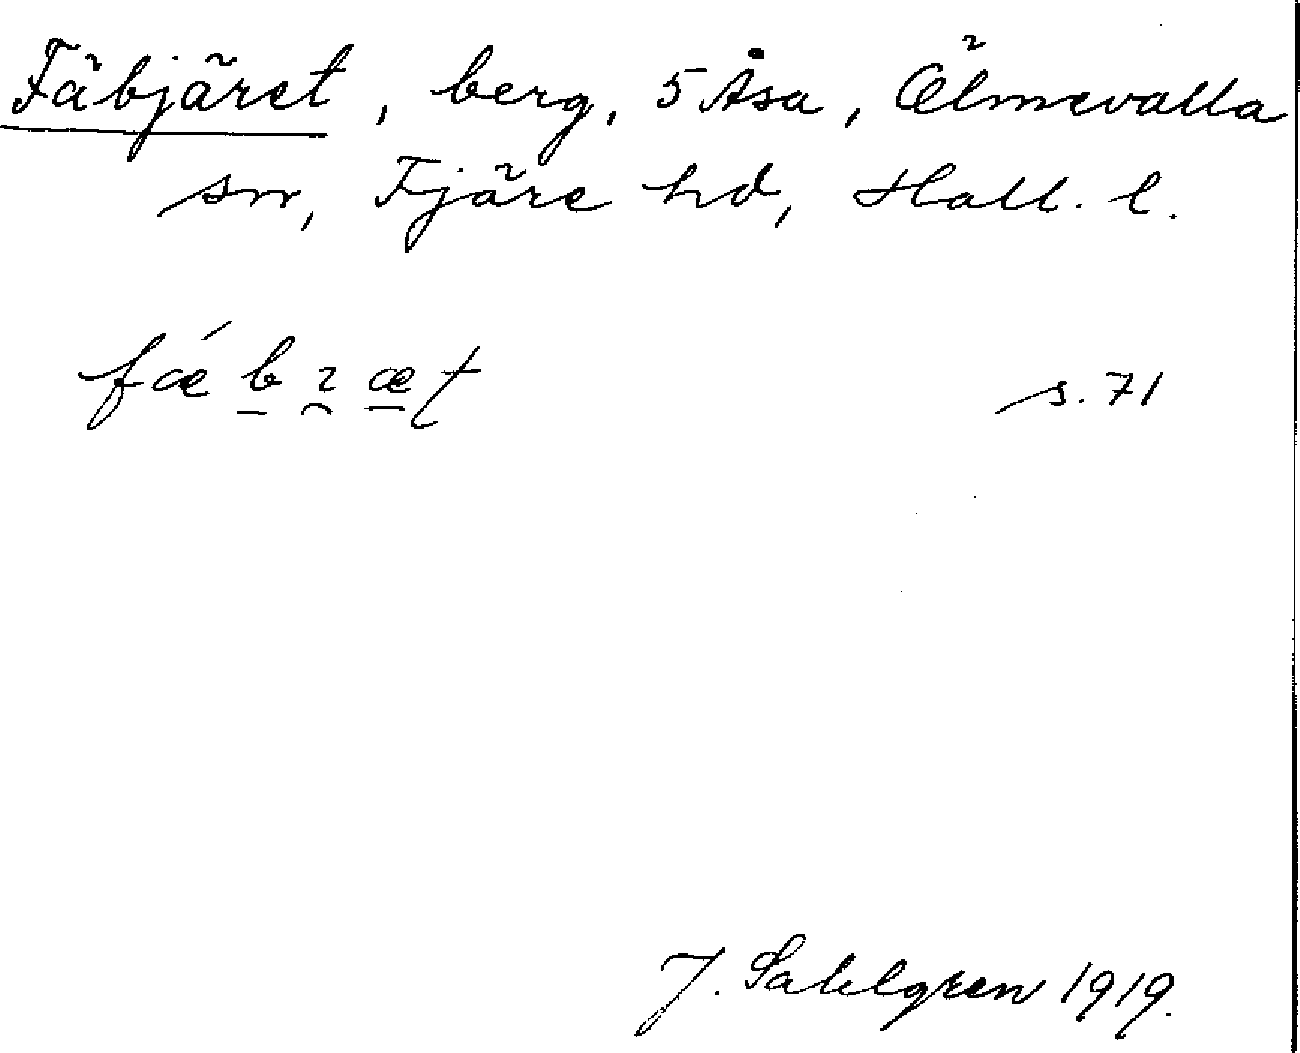 Fäbjäret, berg, 5 Åsa, Ölmevalla
sn, Fjäre hd, Hall. l.
fǽ b ɿ æ t s. 71
J. Sahlgren 1919.